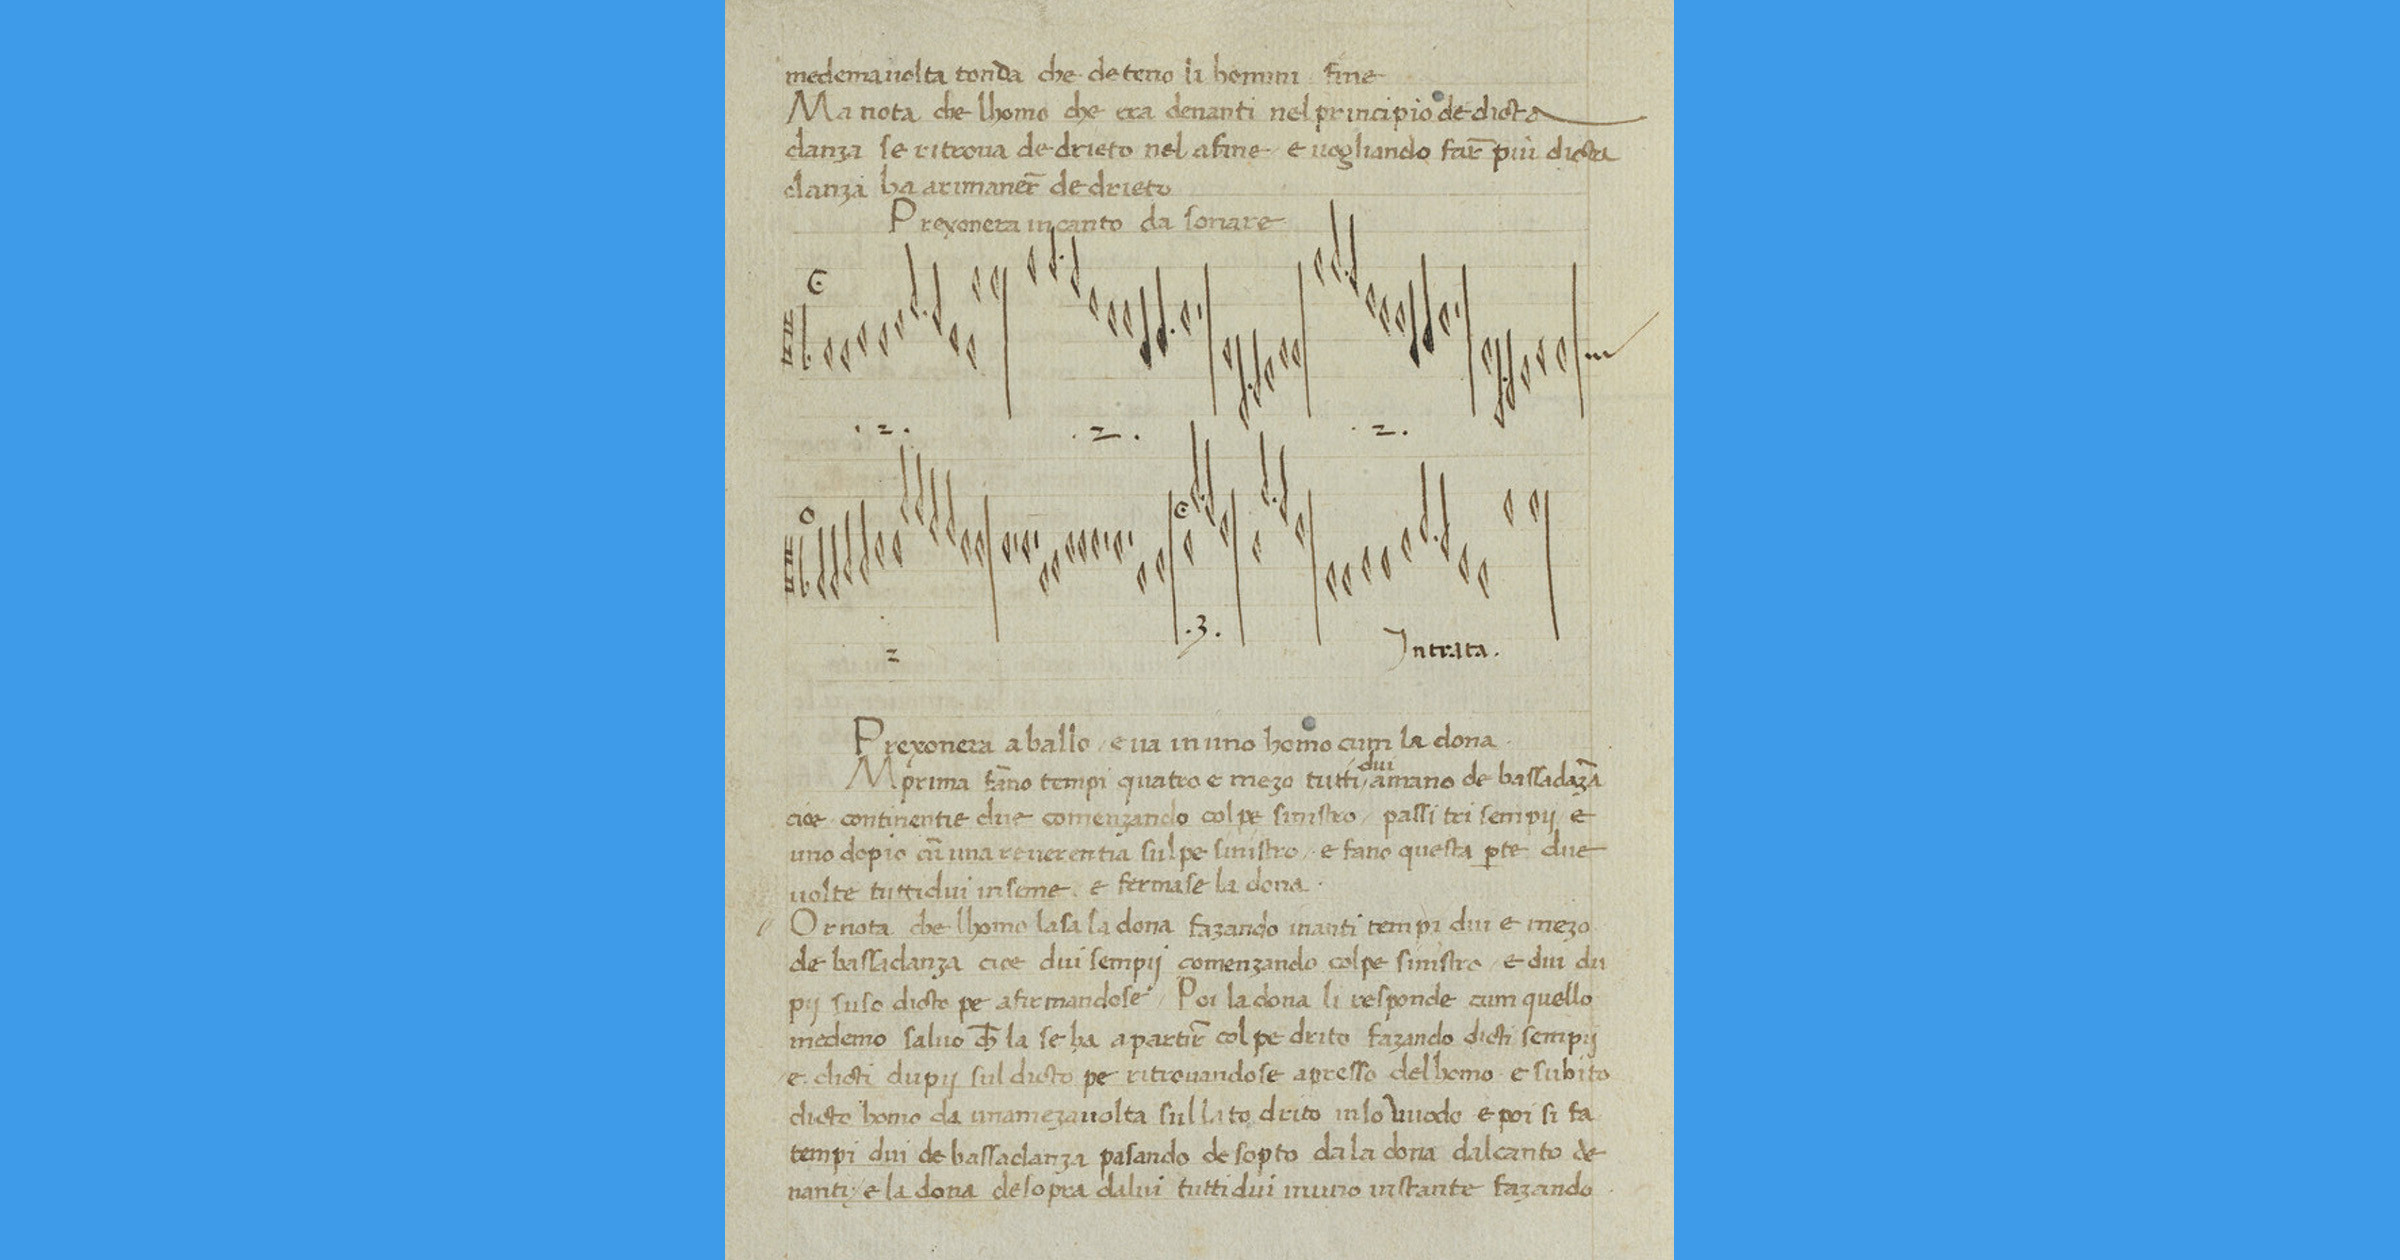 medema uolta tonda che deteno li homini fine
Ma nota che lhomo che era denanti nel principio de dicta
danza se ritroua de drieto nel a fine e uogliando far̄ più dicta
danza ha a rimaner̄ de drieto
Prexonera in canto da sonare
C
.2. .2. .2.
O C
2 .3. Intrata.
Prexonera a ballo / e ua in uno homo cum la dona
dui
Mprima fāno tempi quatro e mezo tutti / a mano de bassadāza
cioe continentie due comenzando col pe sinistro / passi tri sempij / e
uno dopio cū una reuerentia sul pe sinistro / e fano questa pte due
uolte tutti dui inseme e fermase la dona .
Or nota che lhomo lasa la dona fazando inanti tempi dui e mezo
de bassadanza cioe dui sempij comenzando col pe sinistro / e dui du
pij suso dicto pe afirmandose / Poi la dona li responde cum quello
medemo saluo ch la se ha a partir̄ col pe drito fazando dicti sempij
e dicti dupij sul dicto pe ritrouandose apresso del homo e subito
dicto homo da una meza uolta sul lato drito in lo modo e poi si fa
tempi dui de bassadanza pasando de sopto da la dona dal canto de
nanti / e la dona desopra da lui tutti dui in uno instante fazando